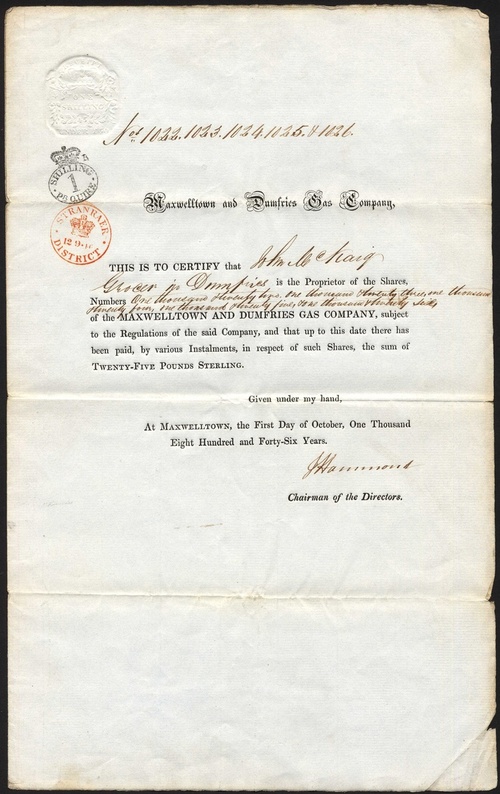 Nos 1022. 1023. 1024. 1025. & 1026.
SHILLING
1
PR QUIRE
STRANRAER
DISTRICT
Maxwelltown and Dumfries Gas Company,
THIS IS TO CERTIFY that John McKaig
Grocer in Dumfries is the Proprietor of the Shares,
Numbers One thousand & twenty two, One thousand & twenty three, one thousand
& twenty four, one thousand & twenty five, & one thousand & twenty six
of the MAXWELLTOWN AND DUMFRIES GAS COMPANY, subject
to the Regulations of the said Company, and that up to this date there has
been paid, by various Instalments, in respect of such Shares, the sum of
TWENTY-FIVE POUNDS STERLING.
Given under my hand,
At MAXWELLTOWN, the First Day of October, One Thousand
Eight Hundred and Forty-Six Years.
J Hammond
Chairman of the Directors.